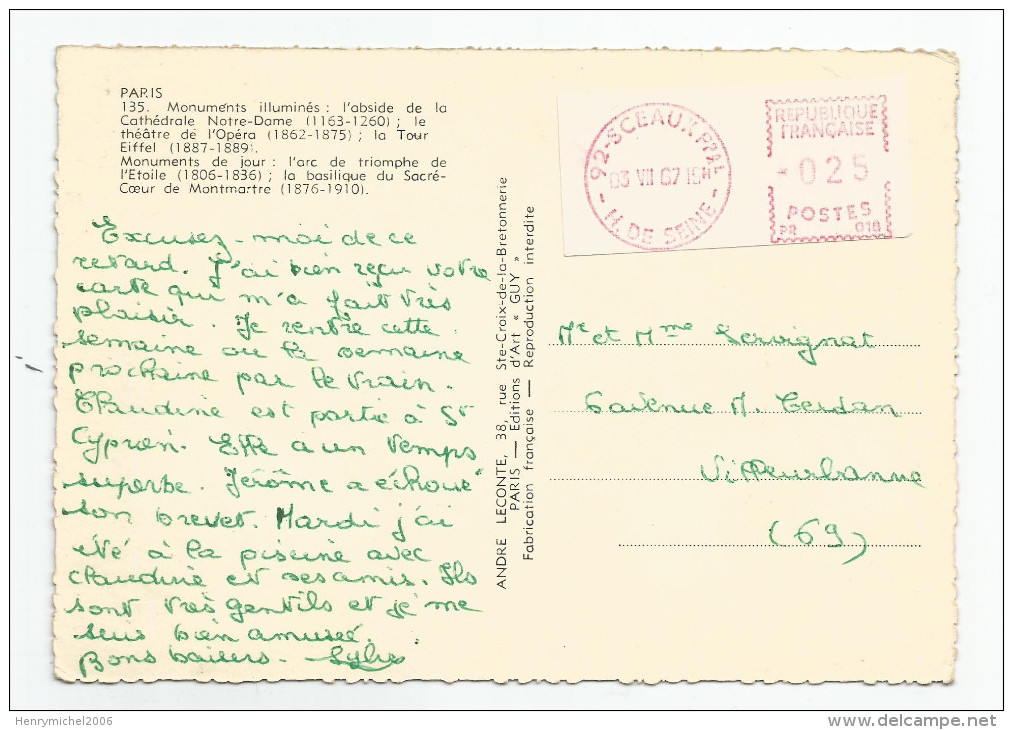 PARIS
135. Monuments illuminés : l'abside de la
Cathédrale Notre-Dame (1163-1260) ; le
théâtre de l'Opéra (1862-1875) ; la Tour
Eiffel (1887-1889).
Monuments de jour : l'arc de triomphe de
l'Etoile (1806-1836) ; la basilique du Sacré-
Cœur de Montmartre (1876-1910).
Excusez-moi de ce
retard. J'ai bien reçu votre
carte qui m'a fait très
plaisir. Je rentre cette
semaine ou la semaine
prochaine par le train.
Claudine est partie à St
Cyprien. Elle a un temps
superbe. Jérôme a échoué
son brevet. Mardi j'ai
été à la piscine avec
Claudine et ses amis. Ils
sont très gentils et je me
suis bien amusée.
Bons baisers.
ANDRE LECONTE, 38, rue Ste-Croix-de-la-Bretonnerie
PARIS — Editions d'Art « GUY »
Fabrication française — Reproduction interdite
92-SCEAUX PPAL
03 VII 67 15H
- H. DE SEINE -
REPUBLIQUE
FRANÇAISE
025
POSTES
PR 018
Mr et Mme Servignat
6 avenue M. Cerdan
Villeurbanne
(69)
Henrymichel2006
delcampe.net